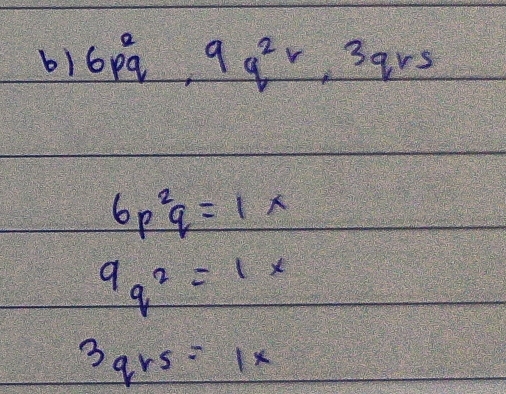 b) 6p²q, 9q²r, 3qrs
6p²q = 1 x
9q² = 1 x
3qrs = 1x